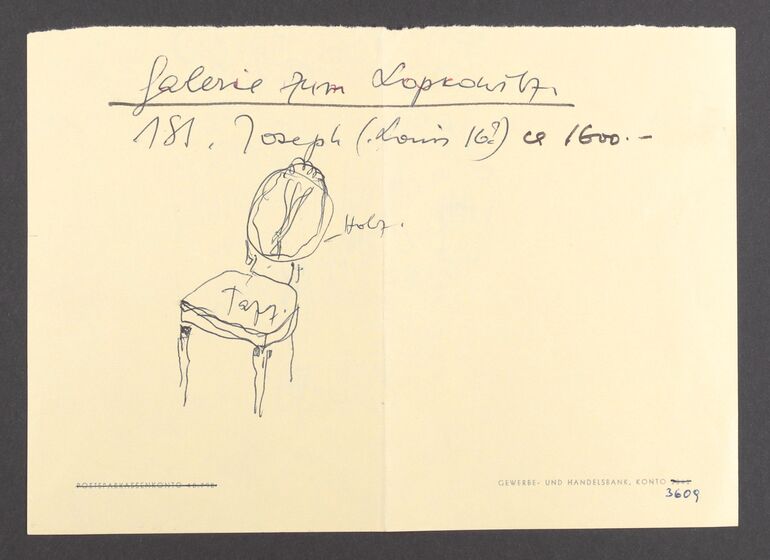 Galerie zum Lopkowitz.
181. Joseph (Louis 16?) ca 1600.-
Holz.
Tapz.
POSTSPARKASSENKONTO
GEWERBE- UND HANDELSBANK, KONTO
3609